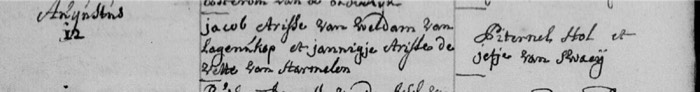 Augustus
12
jacob Arisse van Weldam van
Lagenskop et jannigje Arisse de
Vette van Harmelen
Piternel Hol et
jetje van Swaeij